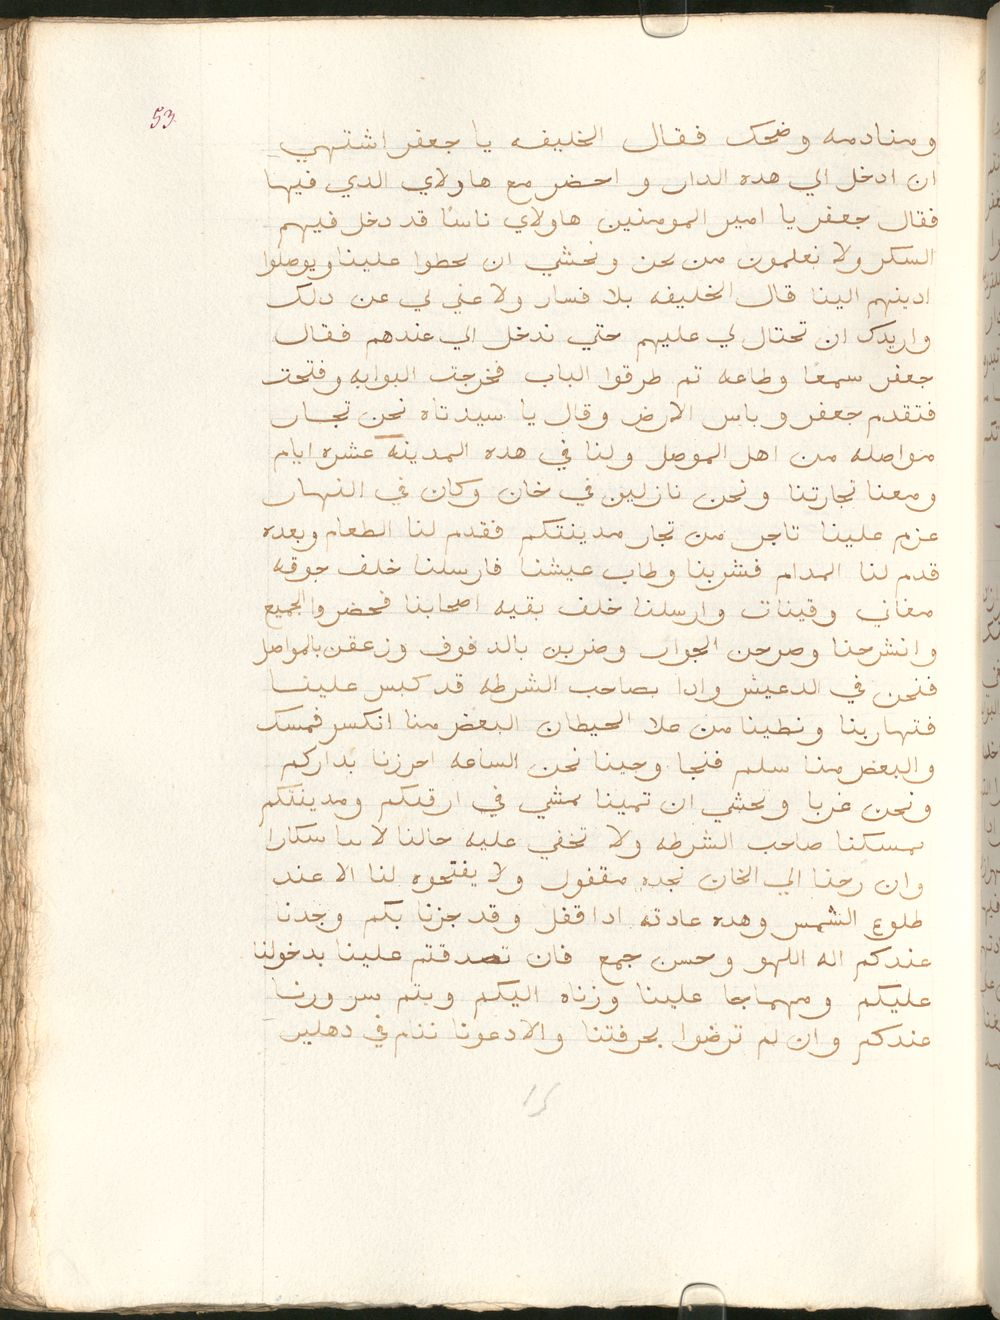 53
ومنادمه وضحك فقال الخليفه يا جعفر اشتهي
ان ادخل الي هده الدار و احضر مع هاولاي الدي فيها
فقال جعفر يا امير المومنين هاولاي ناسًا قد دخل فيهم
السكر ولا يعلمون من نحن ونخشي ان يحطوا علينا ويوصلوا
ادينهم الينا قال الخليفه بلا فسار ولا غني لي عن دلك
واريدك ان تحتال لي عليهم حتي ندخل الي عندهم فقال
جعفر سمعًا وطاعه تم طرقوا الباب فخرجت البوابه وفتحت
فتقدم جعفر وباس الارض وقال يا سيدتاه نحن تجار
مواصله من اهل الموصل ولنا في هده المدينه عشره ايام
ومعنا تجارتنا ونحن نازلين في خان وكان في النهار
عزم علينا تاجر من تجار مدينتكم فقدم لنا الطعام وبعده
قدم لنا المدام فشربنا وطاب عيشنا فارسلنا خلف جوقه
مغاني وقينات وارسلنا خلف بقيه اصحابنا فحضروا الجميع
وانشرحنا وصرحن الجوار وضربن بالدفوف وزعقن بالمواصل
فنحن في الدعيش وادا بصاحب الشرطه قد كبس علينا
فتهاربنا ونطينا من علا الحيطان البعض منا انكسر فمسك
والبعض منا سلم فنجا وجينا نحن الساعه احرزنا بداركم
ونحن غربا ونخشي ان تمينا نمشي في ارقتكم ومدينتكم
يمسكنا صاحب الشرطه ولا تخفي عليه حالنا لاننا سكارا
وان رحنا الي الخان نجده مقفول ولا يفتحوه لنا الا عند
طلوع الشمس وهده عادته ادا قفل وقد جزنا بكم وجدنا
عندكم اله اللهو وحسن جمع فان تصدقتم علينا بدخولنا
عليكم ومهماجا علينا وزناه اليكم ويتم سرورنا
عندكم وان لم ترضوا بحرفتنا والا دعونا ننام في دهلير